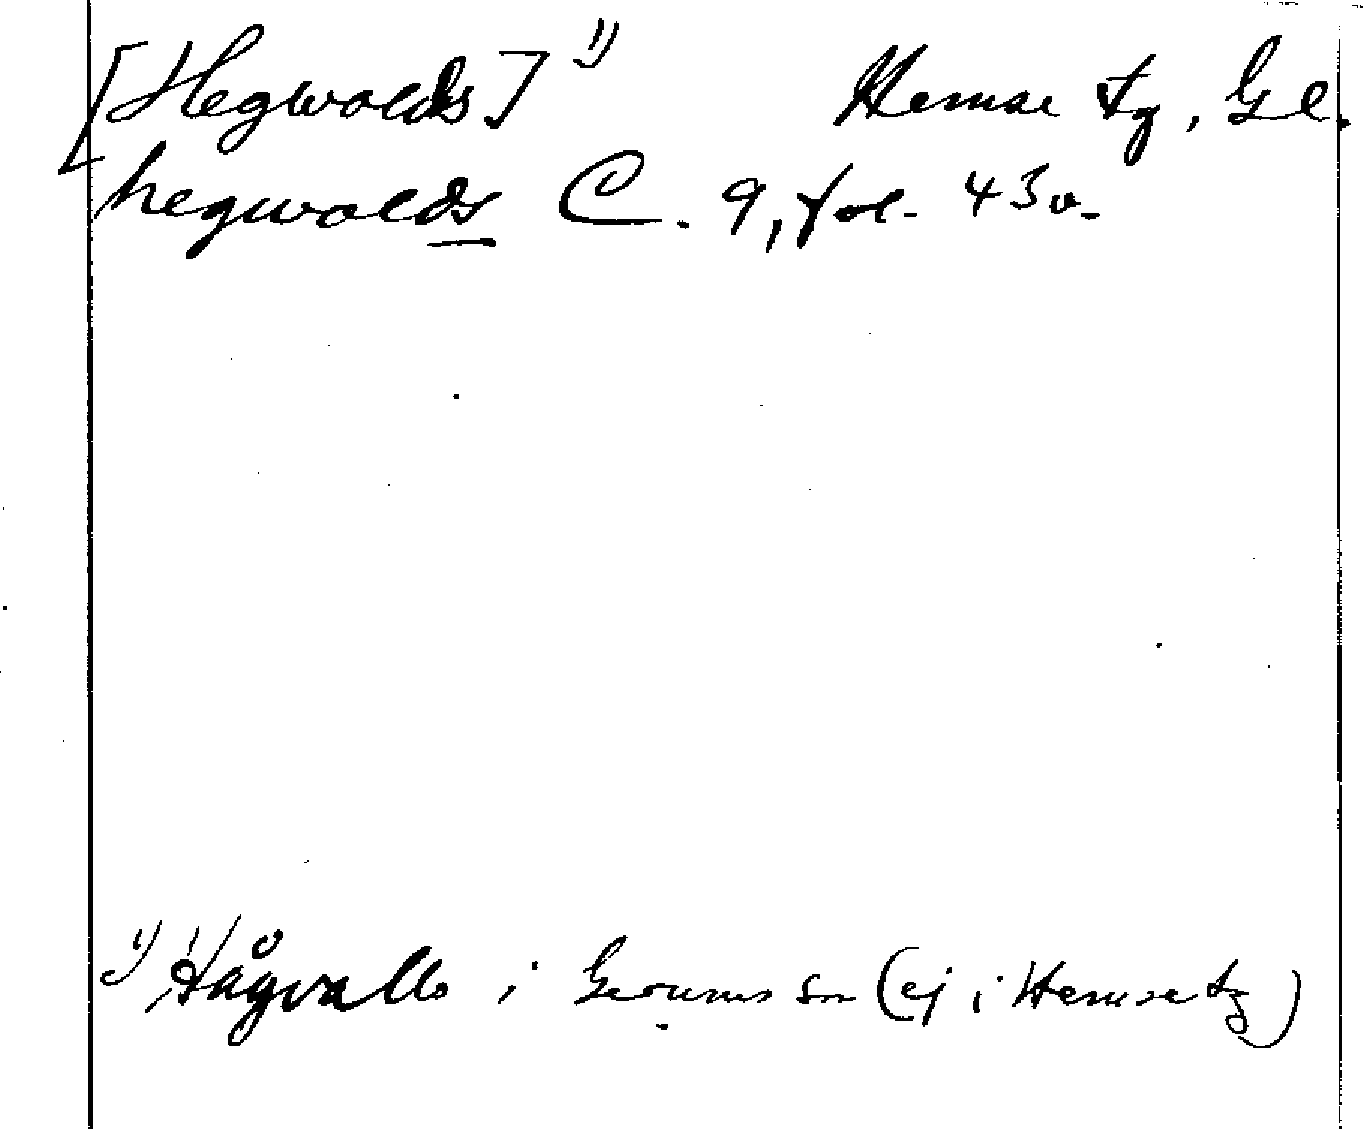 [Hegwolds] 1) Hemse tg, Gl.
hegwolds C. 9, fol. 43v.
1) Hågvalls i Gerums sn (ej i Hemse tg)